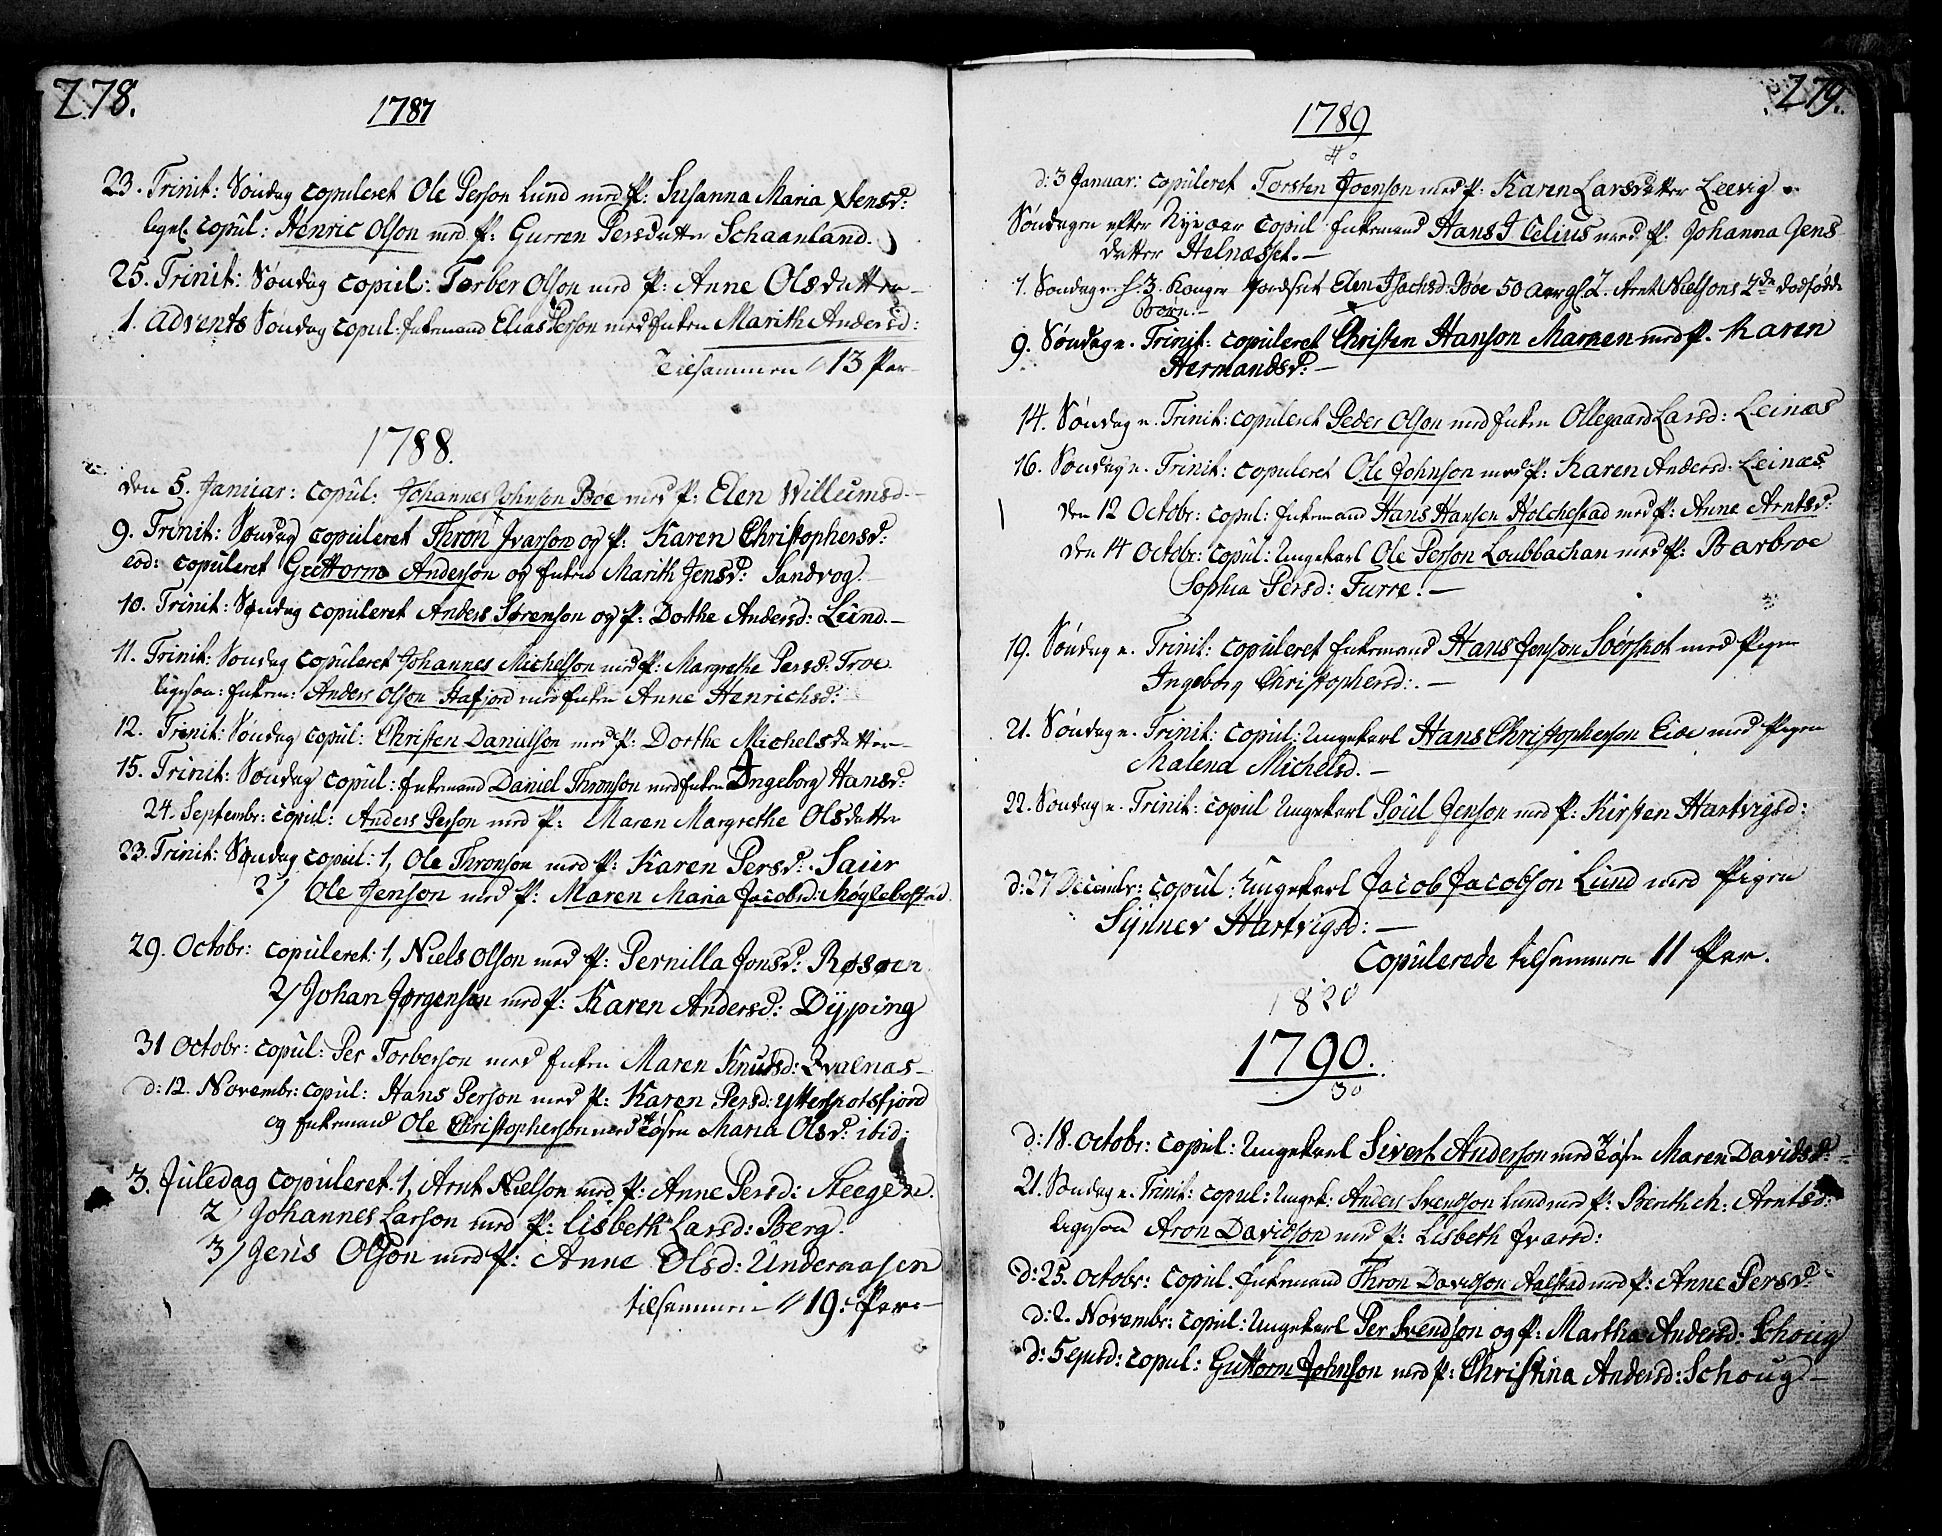 278.
1787
23. Trinit: Søndag copuleret Ole Person Lund med P: Susanna Maria Xtensd:
ligel. copul: Henric Olson med P: Gurren Persdatter Schaanland.
25. Trinit: Søndag copul: Torber Olson med P: Anne Olsdatter
1. Advents Søndag copul: Enkemand Elias Person med Enken Marith Andersd:
Tilsammen 13 Par
1788.
den 5. Januar: copul: Johannes Johnson Bøe med P: Elen Willumsd.
9. Trinit: Søndag copuleret Thron Ivarson og P: Karen Christophersd:
eod: copuleret Guttorm Anderson og Enken Marith Jensd: Sandvog.
10. Trinit: Søndag copuleret Anders Sørenson og P: Dorthe Andersd: Lund.
11. Trinit: Søndag copuleret Johannes Michelson med P: Margrethe Persd: Troe
ligesaa: Enkem: Anders Olson Hafjord med Enken Anne Henrichsd:
12. Trinit: Søndag copul: Christen Danielson med P: Dorthe Michelsdatter
15. Trinit: Søndag copul: Enkemand Daniel Thronson med Enken Ingeborg Hansd:
24. Septembr: copul: Anders Person med P: Maren Margrethe Olsdatter
23. Trinit: Søndag copul: 1, Ole Thronson med P: Karen Persd: Saur
2/ Ole Jenson med P: Maren Maria Jacobsd: Møglebostad
29. Octobr: copuleret: 1, Niels Olson med P: Pernilla Jonsd: Røsøen
2/ Johan Jørgenson med P: Karen Andersd: Dypping
31 Octobr: copul: Per Torberson med Enken Maren Knudsd: Hvalnas
d: 12. Novembr: copul: Hans Person med P: Karen Persd: Ytterskotsfjord
og Enkemand Ole Christopherson med Tøsen Maria Olsd: ibid:
3. Juledag copuleret: 1, Arnt Nielson med P: Anne Persd: Steegen.
2/ Johannes Larson med P: Lisbeth Larsd: Berg.
3/ Jens Olson med P: Anne Olsd: Underaasen
tilsammen 19: Par
279.
1789
d: 3 Januar: copuleret Torsten Joenson med P: Karen Larsdatter Leevig
Søndagen efter Nyeaar copul Enkemand Hans J Celius med P. Johanna Jens
datter Helnæsset.
1. Søndag e. H. 3. Konger Jordfæst Elen Isachsd. Bøe 50 Aar gl. 2. Arnt Nielsons 2de dødfødde
Børn.
9. Søndag e. Trinit: copuleret Christen Hanson Marnen med P. Karen
Hermandsd:
14. Søndag e. Trinit: copuleret Peder Olson med Enken Ollegaard Larsd: Leinæs
16. Søndag e. Trinit: copuleret Ole Johnson med P: Karen Andersd: Leinæs
den 12 Octobr: copul: Enkemand Hans Hansen Holchestad med P: Anne Arntsd:
den 14 Octobr: copul: Ungekarl Ole Person Loubbachan med P: Barbroe
Sophia Persd: Furre.
19. Søndag e. Trinit: copuleret Enkemand Hans Jonson Soørskot med Pigen
Ingeborg Christophersd:
21. Søndag e. Trinit: copul: Ungekarl Hans Christopherson Eide med Pigen
Malena Michelsd.
22. Søndag e. Trinit: copul Ungekarl Poul Jenson med P: Kirsten Hartvigsd:
d: 27 Decembr: copul: Ungekarl Jacob Jacobson Lund med Pigen
Synnev Hartvigsd:
Copulerede tilsammen 11 Par.
1820
1790.
30
d: 18. Octobr: copul: Ungekarl Sivert Anderson med Tøsen Maren Davidsd:
21. Søndag e. Trinit: copul: Ungek: Anders Svendson Lund med P: Berithch: Arntsd:
ligesaa Aron Davidson med P: Lisbeth Ivarsd:
d: 25. Octobr: copul. Enkemand Thron Davidson Aalstad med P: Anne Persd:
d: 2. Novembr: copul: Ungekarl Per Svendson og P: Martha Andersd: Schoug
d: 5 ejusd: copul: Guttorm Johnson med P: Christina Andersd: Schoug